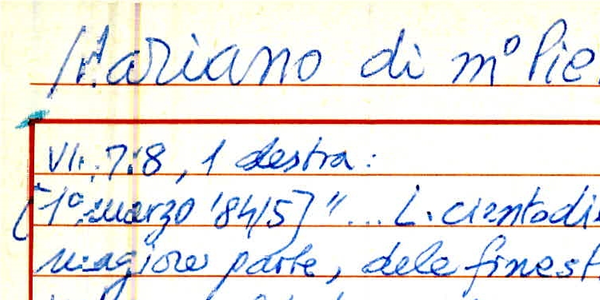 Mariano di m° Pie
VI, 7:8, 1 destra:
[1° marzo '84/5] "... L. cientodi
magiore parte, dele finest